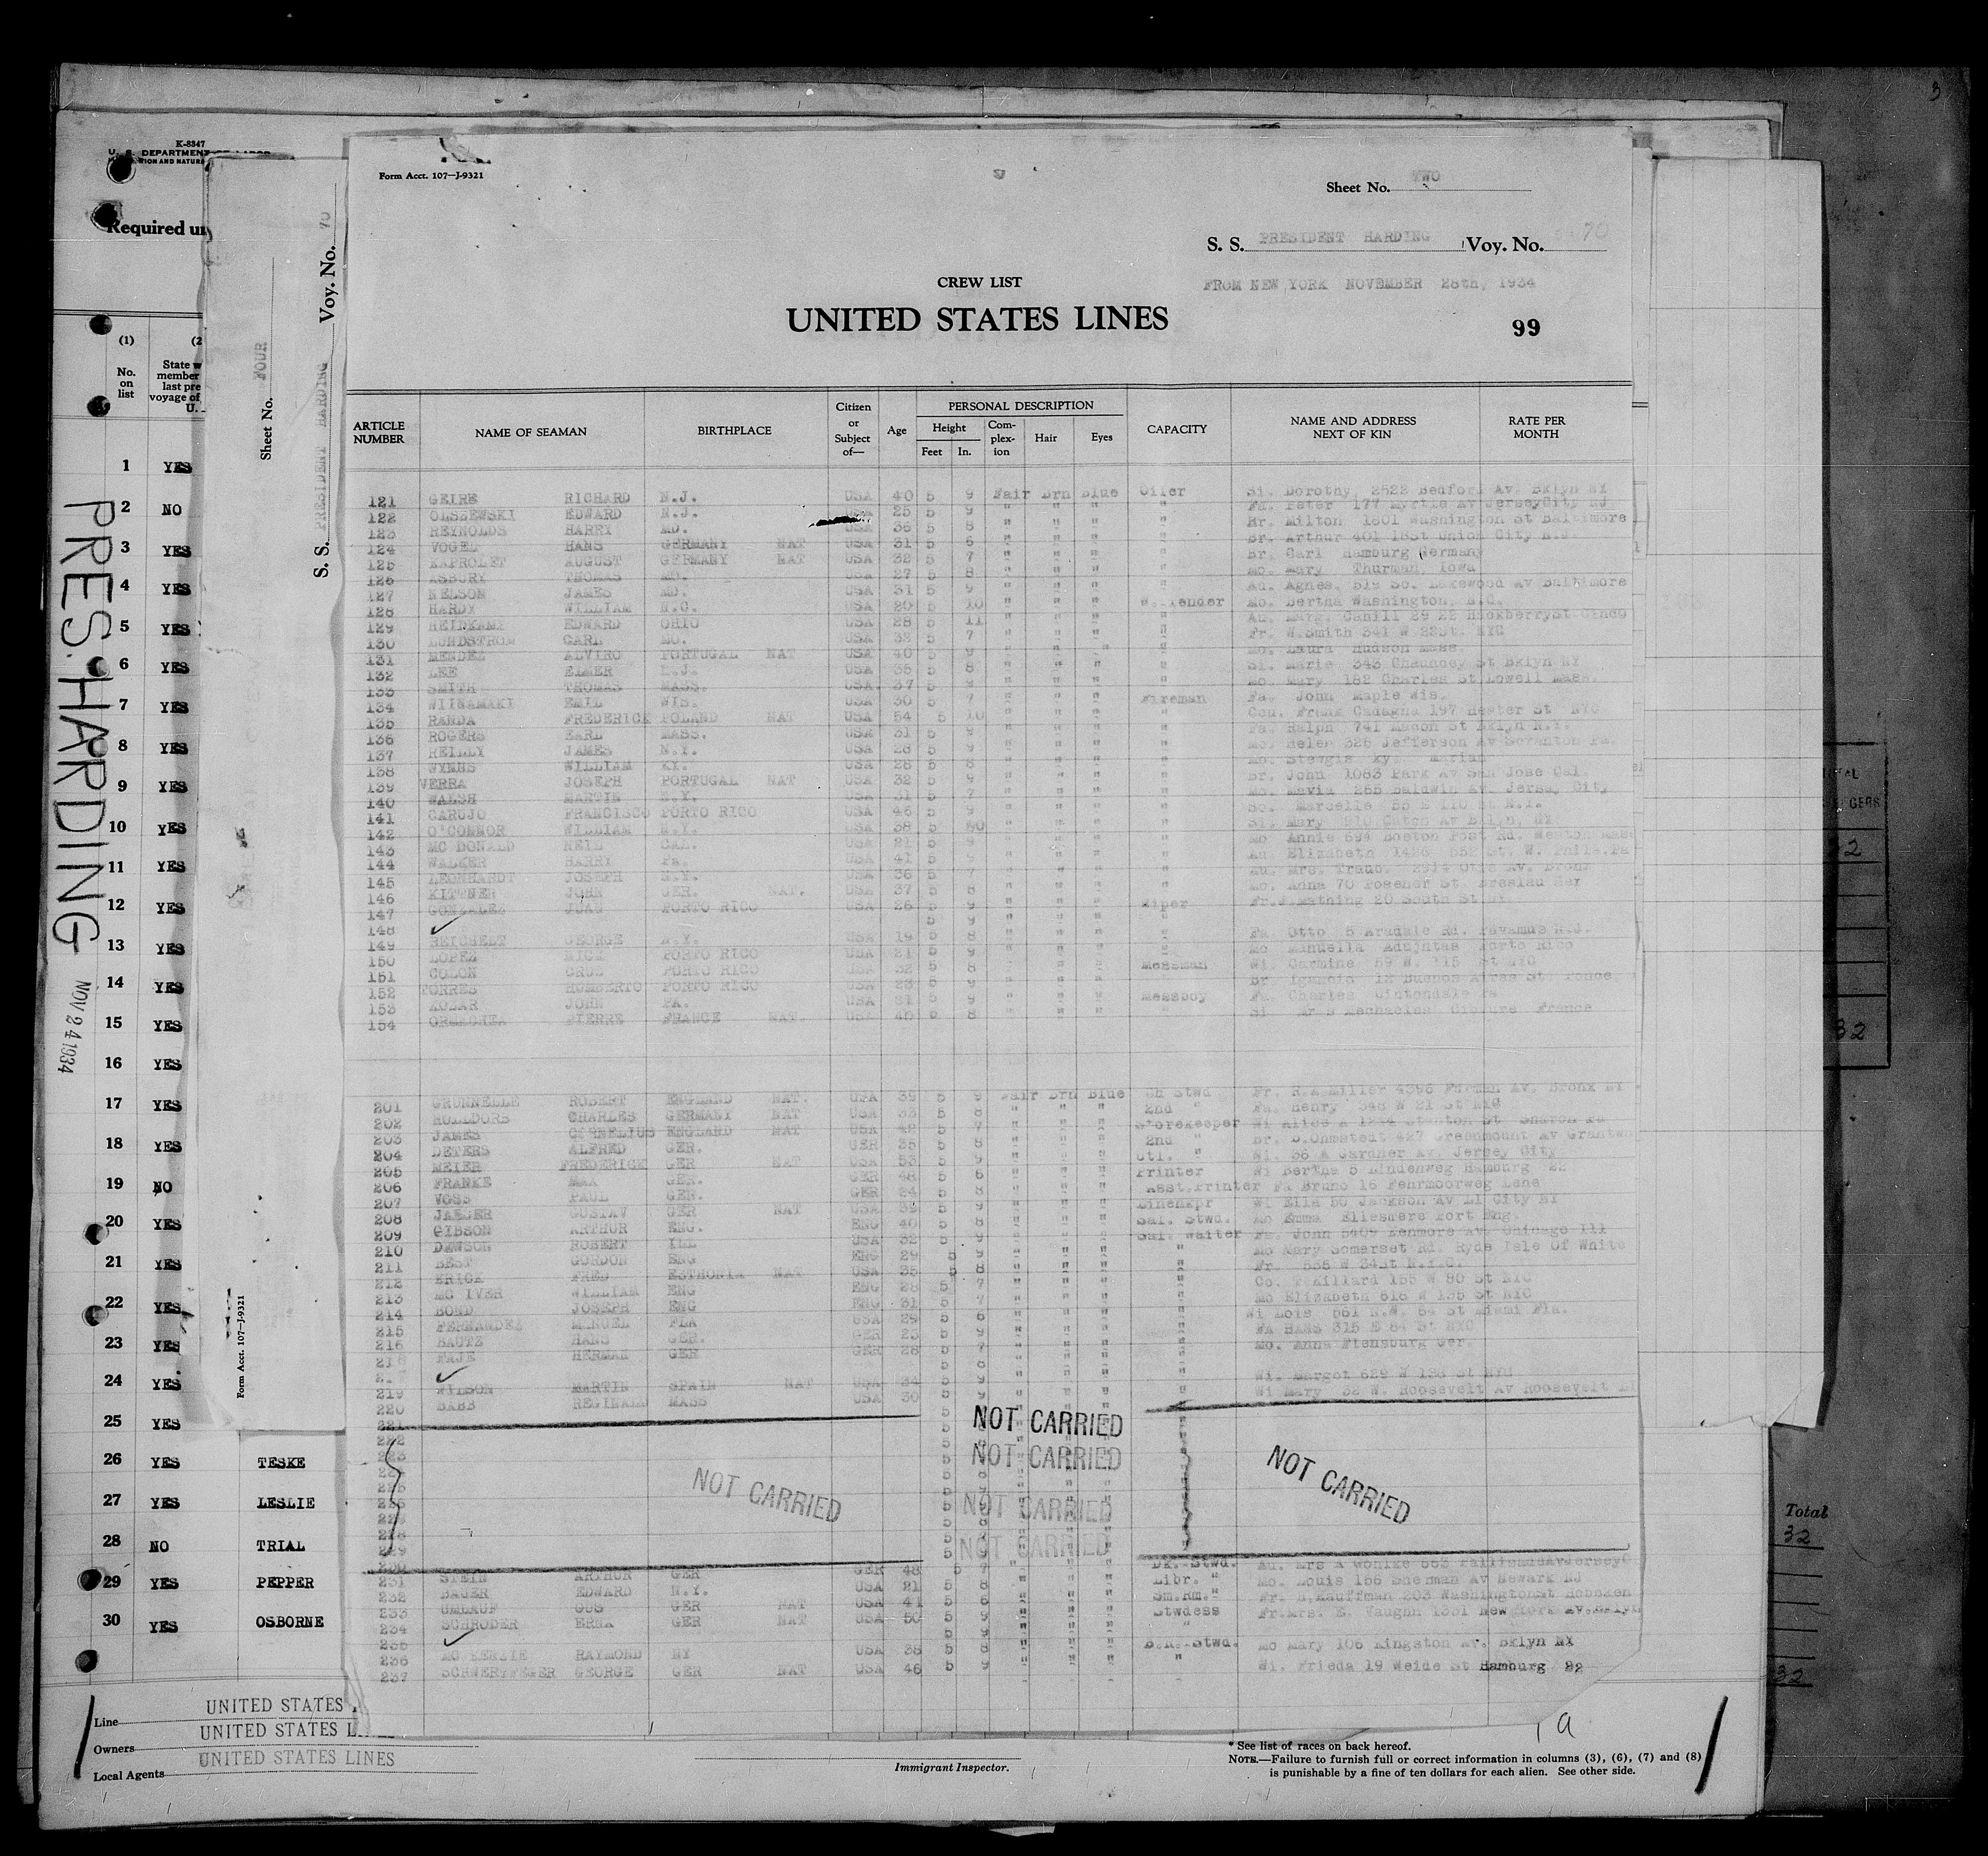 3
K-8347
U. S. DEPARTMENT OF LABOR
Required un
(1)
No. on list
State w
member
last pre
voyage of
U.
1 YES
2 NO
3 YES
4 YES
5 YES
6 YES
7 YES
8 YES
9 YES
10 YES
11 YES
12 YES
13 YES
14 YES
15 YES
16 YES
17 YES
18 YES
19 NO
20 YES
21 YES
22 YES
23 YES
24 YES
25 YES
26 YES TESKE
27 YES LESLIE
28 NO TRIAL
29 YES PEPPER
30 YES OSBORNE
PRES. HARDING
NOV 24 1934
Sheet No. FOUR
S. S. PRESIDENT HARDING Voy. No. 70
Form Acct. 107—J-9321
Form Acct. 107—J-9321
Sheet No. TWO
S. S. PRESIDENT HARDING Voy. No. 70
FROM NEW YORK NOVEMBER 28th, 1934
CREW LIST
UNITED STATES LINES
99
ARTICLE NUMBER NAME OF SEAMAN BIRTHPLACE Citizen or Subject of— Age PERSONAL DESCRIPTION Height Feet In. Complexion Hair Eyes CAPACITY NAME AND ADDRESS NEXT OF KIN RATE PER MONTH
121 GEIRE RICHARD N.J. USA 40 5 9 Fair Brn Blue Oiler Si. Dorothy 2522 Bedford Av. Bklyn NY
122 OLSZEWSKI EDWARD N.J. 25 5 9 " " " " Fa. Peter 177 Myrtle Av JerseyCity NJ
123 REYNOLDS HARRY MD. USA 36 5 8 " " " " Br. Milton 1801 Washington St Baltimore
124 VOGEL HANS GERMANY NAT USA 31 5 6 " " " " Br. Arthur 401 18St Union City N.J.
125 AUGUST GERMANY NAT USA 32 5 7 " " " " Br. Carl Hamburg Germany
126 ASBURY THOMAS MO. USA 27 5 8 " " " " Mo. Mary Thurman, Iowa
127 NELSON JAMES MD. USA 31 5 9 " " " " Au. Agnes. 519 So. Lakewood Av Baltimore
128 HARDY WILLIAM N.C. USA 20 5 10 " " " W. Tender Mo. Bertha Washington, N.C.
129 HEIDKAMP EDWARD OHIO USA 28 5 11 " " " " Au. Marg. Cahill 29 22 HackberrySt Cinco
130 LUNDSTROM CARL MO. USA 5 7 " " " " Fr. W.Smith 341 W 22St. NYC
131 MENDEZ ALVIRO PORTUGAL NAT USA 40 5 9 " " " " Mo. Laura Hudson Mass.
132 LEE ELMER N.J. USA 35 5 8 " " " " Si. Marie 343 Chauncey St Bklyn NY
133 SMITH THOMAS MASS. USA 37 5 9 " " " " Mo. Mary 182 Charles St Lowell Mass.
134 WIINAMAKI EMIL WIS. USA 30 5 7 " " " Fireman Fa. John Maple Wis.
135 RANDA FREDERICK POLAND NAT USA 54 5 10 " " " " Cou. Frank Cadagna 197 Hester St NYC
136 ROGERS EARL MASS. USA 31 5 9 " " " " Fa. Ralph 741 Macon St Bklyn N.Y.
137 REILLY JAMES N.Y. USA 28 5 9 " " " " Mo. Helen 326 Jefferson Av Scranton Pa.
138 WILLIAM KY. USA 28 5 8 " " " " Mo. Stewgis Ky. Marian
139 VERRA JOSEPH PORTUGAL NAT USA 32 5 9 " " " " Br. John 1083 Park Av San Jose Cal.
140 WALSH MARTIN N.Y. USA 31 5 7 " " " " Mo. Mavia 265 Baldwin Av. Jersey City
141 CARUJO FRANCISCO PORTO RICO USA 46 5 9 " " " " Marcelle 55 E 110 St N.Y.
142 O'CONNOR WILLIAM N.Y. USA 38 5 " " " " Si. Mary 910 Caton Av Bklyn, NY
143 MC DONALD NEIL CAL. USA 21 5 9 " " " " Mo Annie 594 Boston Post Rd. Weston Mass
144 WALKER HARRY Pa. USA 41 5 9 " " " " Au. Elizabeth S52 St. W. Phila.Pa
145 LEONHARDT JOSEPH N.Y. USA 36 5 7 " " " " Au. Mrs. Traub. 2914 Otis Av. Bronx
146 KITTNER JOHN GER. NAT. USA 37 5 8 " " " " Mo. Anna 70 Posener St. Breslau Ger
147 GONZALEZ JUAN PORTO RICO USA 26 5 9 " " " Wiper Fr.J.Mathing 20 South St NY
148 5 9 " " " "
149 REICHELT GEORGE N.Y. USA 19 5 8 " " " " Fa. Otto 5 Arudale Rd. Pavamus N.J.
150 LOPEZ NICK PORTO RICO USA 21 5 9 " " " " Mo Manuella Adajntas Porto Rico
151 COLON CRUS PORTO RICO USA 32 5 8 " " " Messman Wi Carmine 59 W. 115 St NYC
152 TORRES HUMBERTO PORTO RICO USA 23 5 9 " " " " Br. Ignacia 12 Buenos Aires St. Ponce.
153 KOZAR JOHN PA. USA 21 5 9 " " " Messboy Fa. Charles Clintondale Pa
154 PIERRE FRANCE NAT. USA 40 5 8 " " " " Si Mrs Mechaelas Ciboure France
201 GRUNNELLE ROBERT ENGLAND NAT. USA 39 5 9 Fair Brn Blue Ch Stwd Fr. R.A.Miller 4396 Furman Av. Bronx NY
202 HOLLDORS CHARLES GERMANY NAT USA 32 5 8 " " " 2nd " Fa. Henry 348 W 21 St NYC
203 JAMES CORNELIUS ENGLAND NAT USA 42 5 7 " " " Storekeeper Wi Alice A 1234 Stanton St Sharon Pa
204 DETERS ALFRED GER. GER 25 5 8 " " " 2nd " Br. D.Ohmstedt 427 Greenmount Av Grantwo
205 MEIER FREDERICK GER NAT USA 53 5 9 " " " Utl. " Wi. 36 A Gardner Av. Jersey City
206 FRANKE MAX GER. GER 48 5 6 " " " Printer Wi Bertha 5 Lindenweg Hamburg 22
207 VOSS PAUL GER. GER 24 5 8 " " " Asst.Printer Fa Bruno 16 Fehrmoorweg Lehe
208 JAEGER GUSTAV GER NAT USA 39 5 9 " " " Linenkpr Wi Ella 50 Jackson Av LI City NY
209 GIBSON ARTHUR ENG. ENG 40 5 8 " " " Sal. Stwd. Mo Emma Ellesmere Port Eng.
210 DAWSON ROBERT ILL USA 32 5 9 " " " Sal. Waiter Fa. John 5409 Kenmore Av. Chicago Ill
211 BEST GORDON ENG ENG 29 5 9 " " " " Mo Mary Somerset Rd. Ryde Isle Of White
212 ERICK FRED ESTHONIA NAT USA 35 5 8 " " " " Fr. 535 W 34St N.Y.C.
213 MC IVER WILLIAM ENG ENG 28 5 7 " " " " Co. T Killard 155 W 80 St NYC
214 BOND JOSEPH ENG ENG 31 5 7 " " " " Mo Elizabeth 618 W 135 St NYC
215 FERNANDEZ MANUEL FLA USA 29 5 6 " " " " Wi Lois 561 N.W. 54 St Miami Fla.
216 BAUTZ HANS GER. GER 23 5 9 " " " " FA HANS 315 E 84 St NYC
HERMAN GER GER 28 5 7 " " " " Mo. Anna Flensburg Ger.
5 8 " " " "
219 WILSON MARTIN SPAIN NAT USA 34 5 9 " " " " Wi. Margot 629 W 138 St NYC
220 BABB REGINALD MASS USA 30 5 9 " " " " Wi Mary 32 W. Roosevelt Av Roosevelt
221
222
223
NOT CARRIED
NOT CARRIED
NOT CARRIED
NOT CARRIED
NOT CARRIED
NOT CARRIED
229
230
231 STEIN ARTHUR GER GER 48 5 7 " " " Dk. Stwd. Au. Mrs A Wohlke 553 PallisadeAvJerseyC
232 BAUER EDWARD N.Y. USA 21 5 8 " " " Libr. " Mo. Louis 156 Sherman Av Newark NJ
233 UMLAUF GUS GER NAT USA 41 5 6 " " " Sm.Rm. " Fr. H.Kauffman 203 Washingtonst Hoboken
234 SCHRODER ERNA GER NAT USA 50 5 9 " " " Stwdess Fr.Mrs. E. Vaughn 1351 New York Av.Bklyn
235 5 9 " " " "
236 MC KENZIE RAYMOND NY USA 38 5 8 " " " B.R. Stwd. Mo Mary 106 Kingston Av. Bklyn NY
237 SCHWERTFEGER GEORGE GER NAT USA 46 5 9 " Wi. Frieda 19 Weide St Hamburg 22
Total
32
32
32
32
a
Line UNITED STATES
Owners UNITED STATES L
Local Agents UNITED STATES LINES
Immigrant Inspector.
* See list of races on back hereof.
NOTE.—Failure to furnish full or correct information in columns (3), (6), (7) and (8)
is punishable by a fine of ten dollars for each alien. See other side.